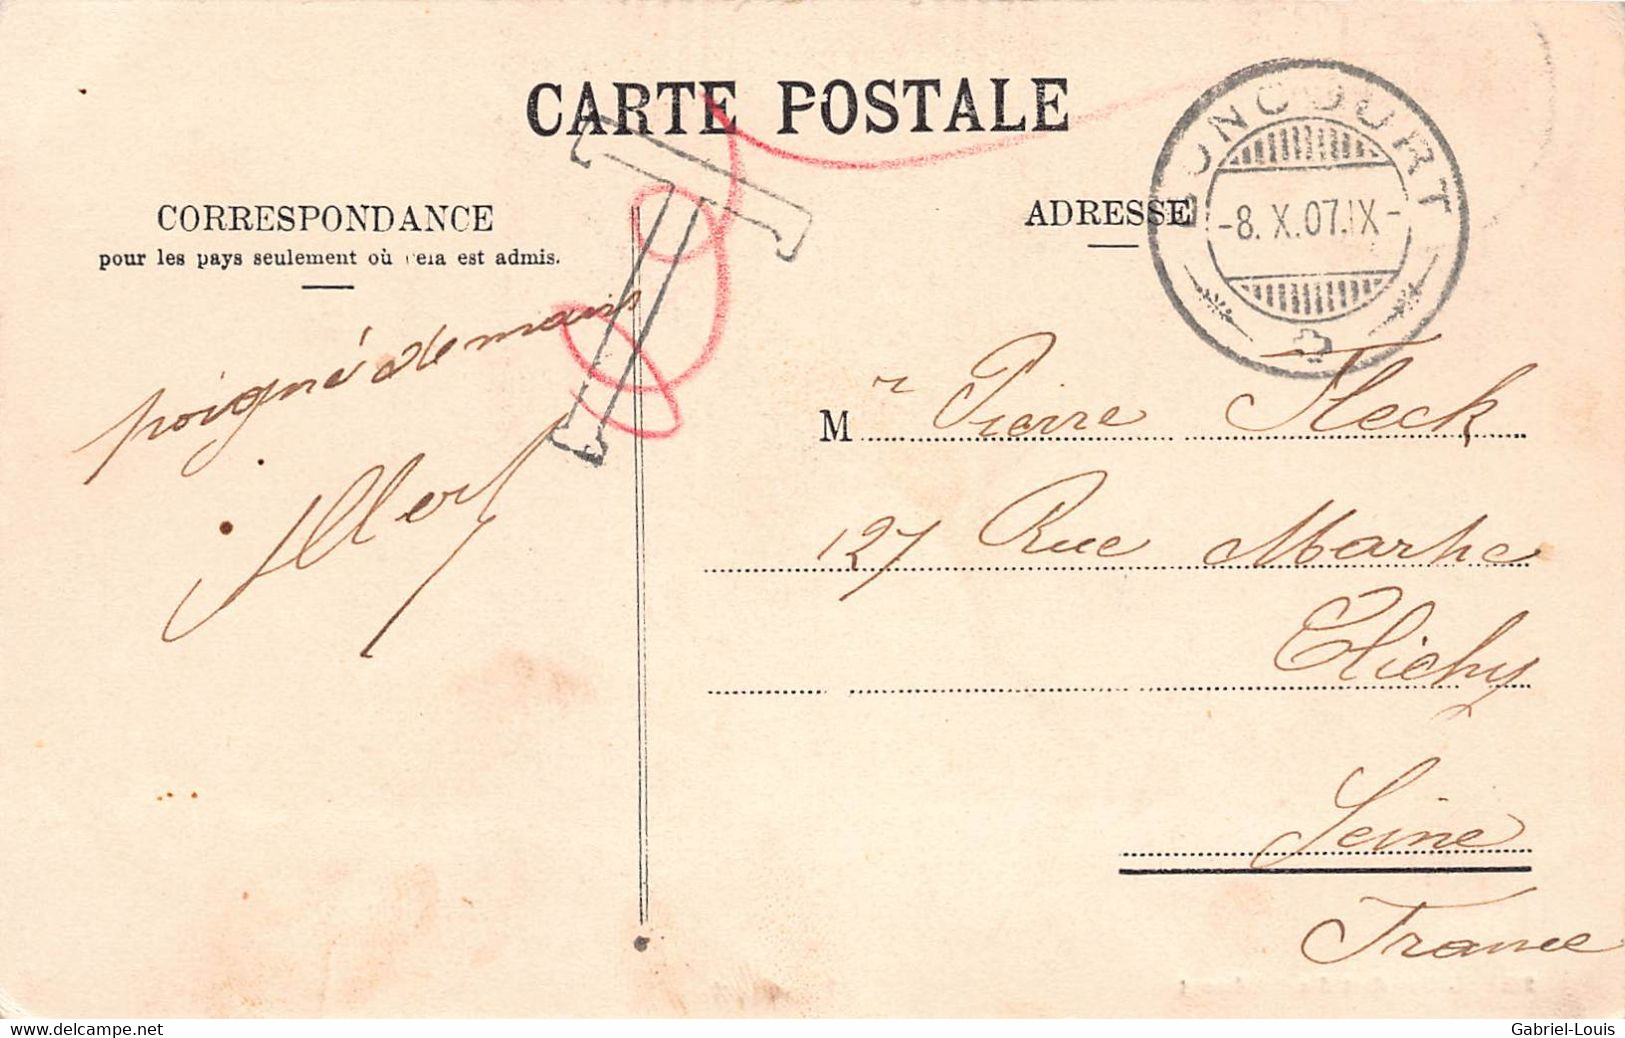 CARTE POSTALE
CORRESPONDANCE
pour les pays seulement où cela est admis.
poigné de main
Albert
ADRESSE
BONCOURT
-8. X.07.IX-
T
M r Pierre Fleck
127 Rue Marthe
Clichy
Seine
France
www.delcampe.net
Gabriel-Louis